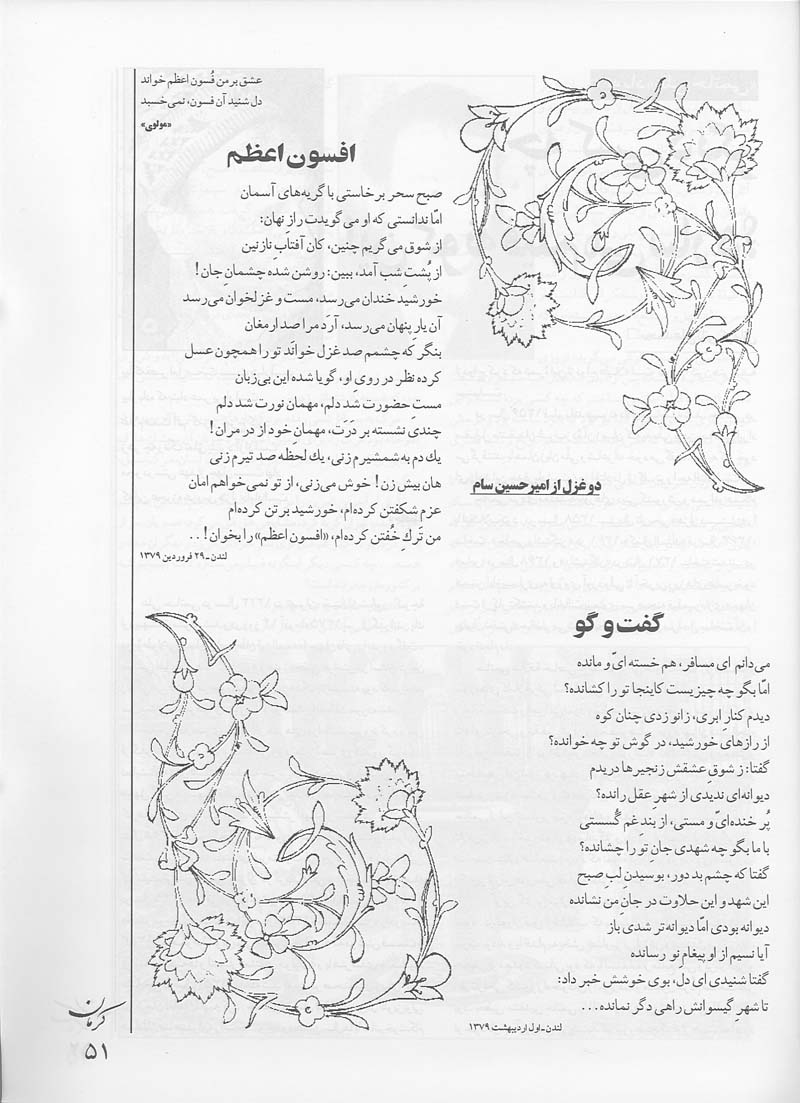 عشق بر من فُسون اعظم خواند
دل شنید آن فسون، نمی‌خسبد
«مولوی»
افسون اعظم
صبح سحر برخاستی با گریه‌های آسمان
امّا ندانستی که او می‌گویدت رازِ نهان:
از شوق می‌گریم چنین، کان آفتابِ نازنین
از پُشتِ شب آمد، ببین: روشن شده چشمانِ جان!
خورشید خندان می‌رسد، مست و غزلخوان می‌رسد
آن یارِ پنهان می‌رسد، آرَد مرا صد ارمغان
بنگر که چشمم صد غزل خوانَد تو را همچون عسل
کرده نظر در رویِ او، گویا شده این بی‌زبان
مستِ حضورت شد دلم، مهمان نورت شد دلم
چندی نشسته بر دَرَت، مهمانِ خود از در مران!
یك دم به شمشیرم زنی، یك لحظه صد تیرم زنی
هان بیش زن! خوش می‌زنی، از تو نمی‌خواهم امان
عزمِ شکفتن کرده‌ام، خورشید بر تن کرده‌ام
من تَركِ خُفتن کرده‌ام، «افسون اعظم» را بخوان!..
لندن ـ ۲۹ فروردین ۱۳۷۹
دو غزل از امیرحسین سام
گفت و گو
می‌دانم ای مسافر، هم خسته‌ایّ و مانده
امّا بگو چه چیزیست کاینجا تو را کشانده؟
دیدم کنارِ ابری، زانو زدی چنان کوه
از رازهای خورشید، در گوش تو چه خوانده؟
گفتا: ز شوقِ عشقش زنجیرها دریدم
دیوانه‌ای ندیدی از شهرِ عقل رانده؟
پُر خنده‌ایّ و مستی، از بندِ غم گُسستی
با ما بگو چه شهدی جانِ تو را چشانده؟
گفتا که چشم بد دور، بوسیدنِ لبِ صبح
این شهد و این حلاوت در جانِ من نشانده
دیوانه بودی امّا دیوانه‌تر شدی باز
آیا نسیم از او پیغامِ نو رسانده
گفتا شنیدی ای دل، بوی خوشش خبر داد:
تا شهرِ گیسوانش راهی دگر نمانده...
لندن ـ اول اردیبهشت ۱۳۷۹
کرمان
۵۱